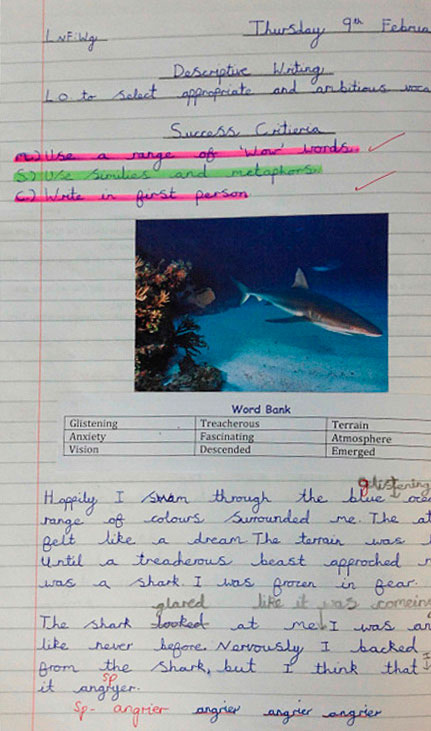 LNF:Wg
Thursday 9th Februa
Descriptive Writing
L.O. to select appropriate and ambitious voca
Success Critieria
M:) Use a range of 'wow' words.
S:) Use similies and metaphors.
C:) Write in first person
Word Bank
Glistening Treacherous Terrain
Anxiety Fascinating Atmosphere
Vision Descended Emerged
glistening
Happily I swam through the blue ocea
range of colours surrounded me. The at
felt like a dream. The terrain was
Until a treacherous beast approched
was a shark. I was frozen in fear.
glared like it was comeing
The shark looked at me I was an
like never before. Nervously I backed
from the shark, but I think that
sp
it angryer.
Sp- angrier angrier angrier angrier